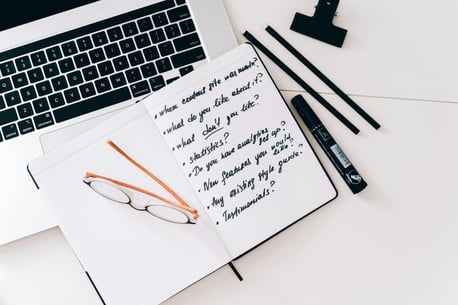 • When current site was made?
• What do you like about it?
• What don't you like?
• statistics?
• Do you have analytics set up?
• New features you would like?
• Any existing style guide?
• Testimonials?